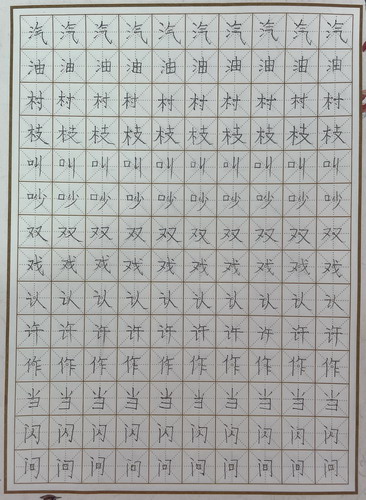 汽汽汽汽汽汽汽汽汽汽
油油油油油油油油油油
村村村村村村村村村村
枝枝枝枝枝枝枝枝枝枝
叫叫叫叫叫叫叫叫叫叫
吵吵吵吵吵吵吵吵吵吵
双双双双双双双双双双
戏戏戏戏戏戏戏戏戏戏
认认认认认认认认认认
许许许许许许许许许许
作作作作作作作作作作
当当当当当当当当当当
闪闪闪闪闪闪闪闪闪闪
问问问问问问问问问问